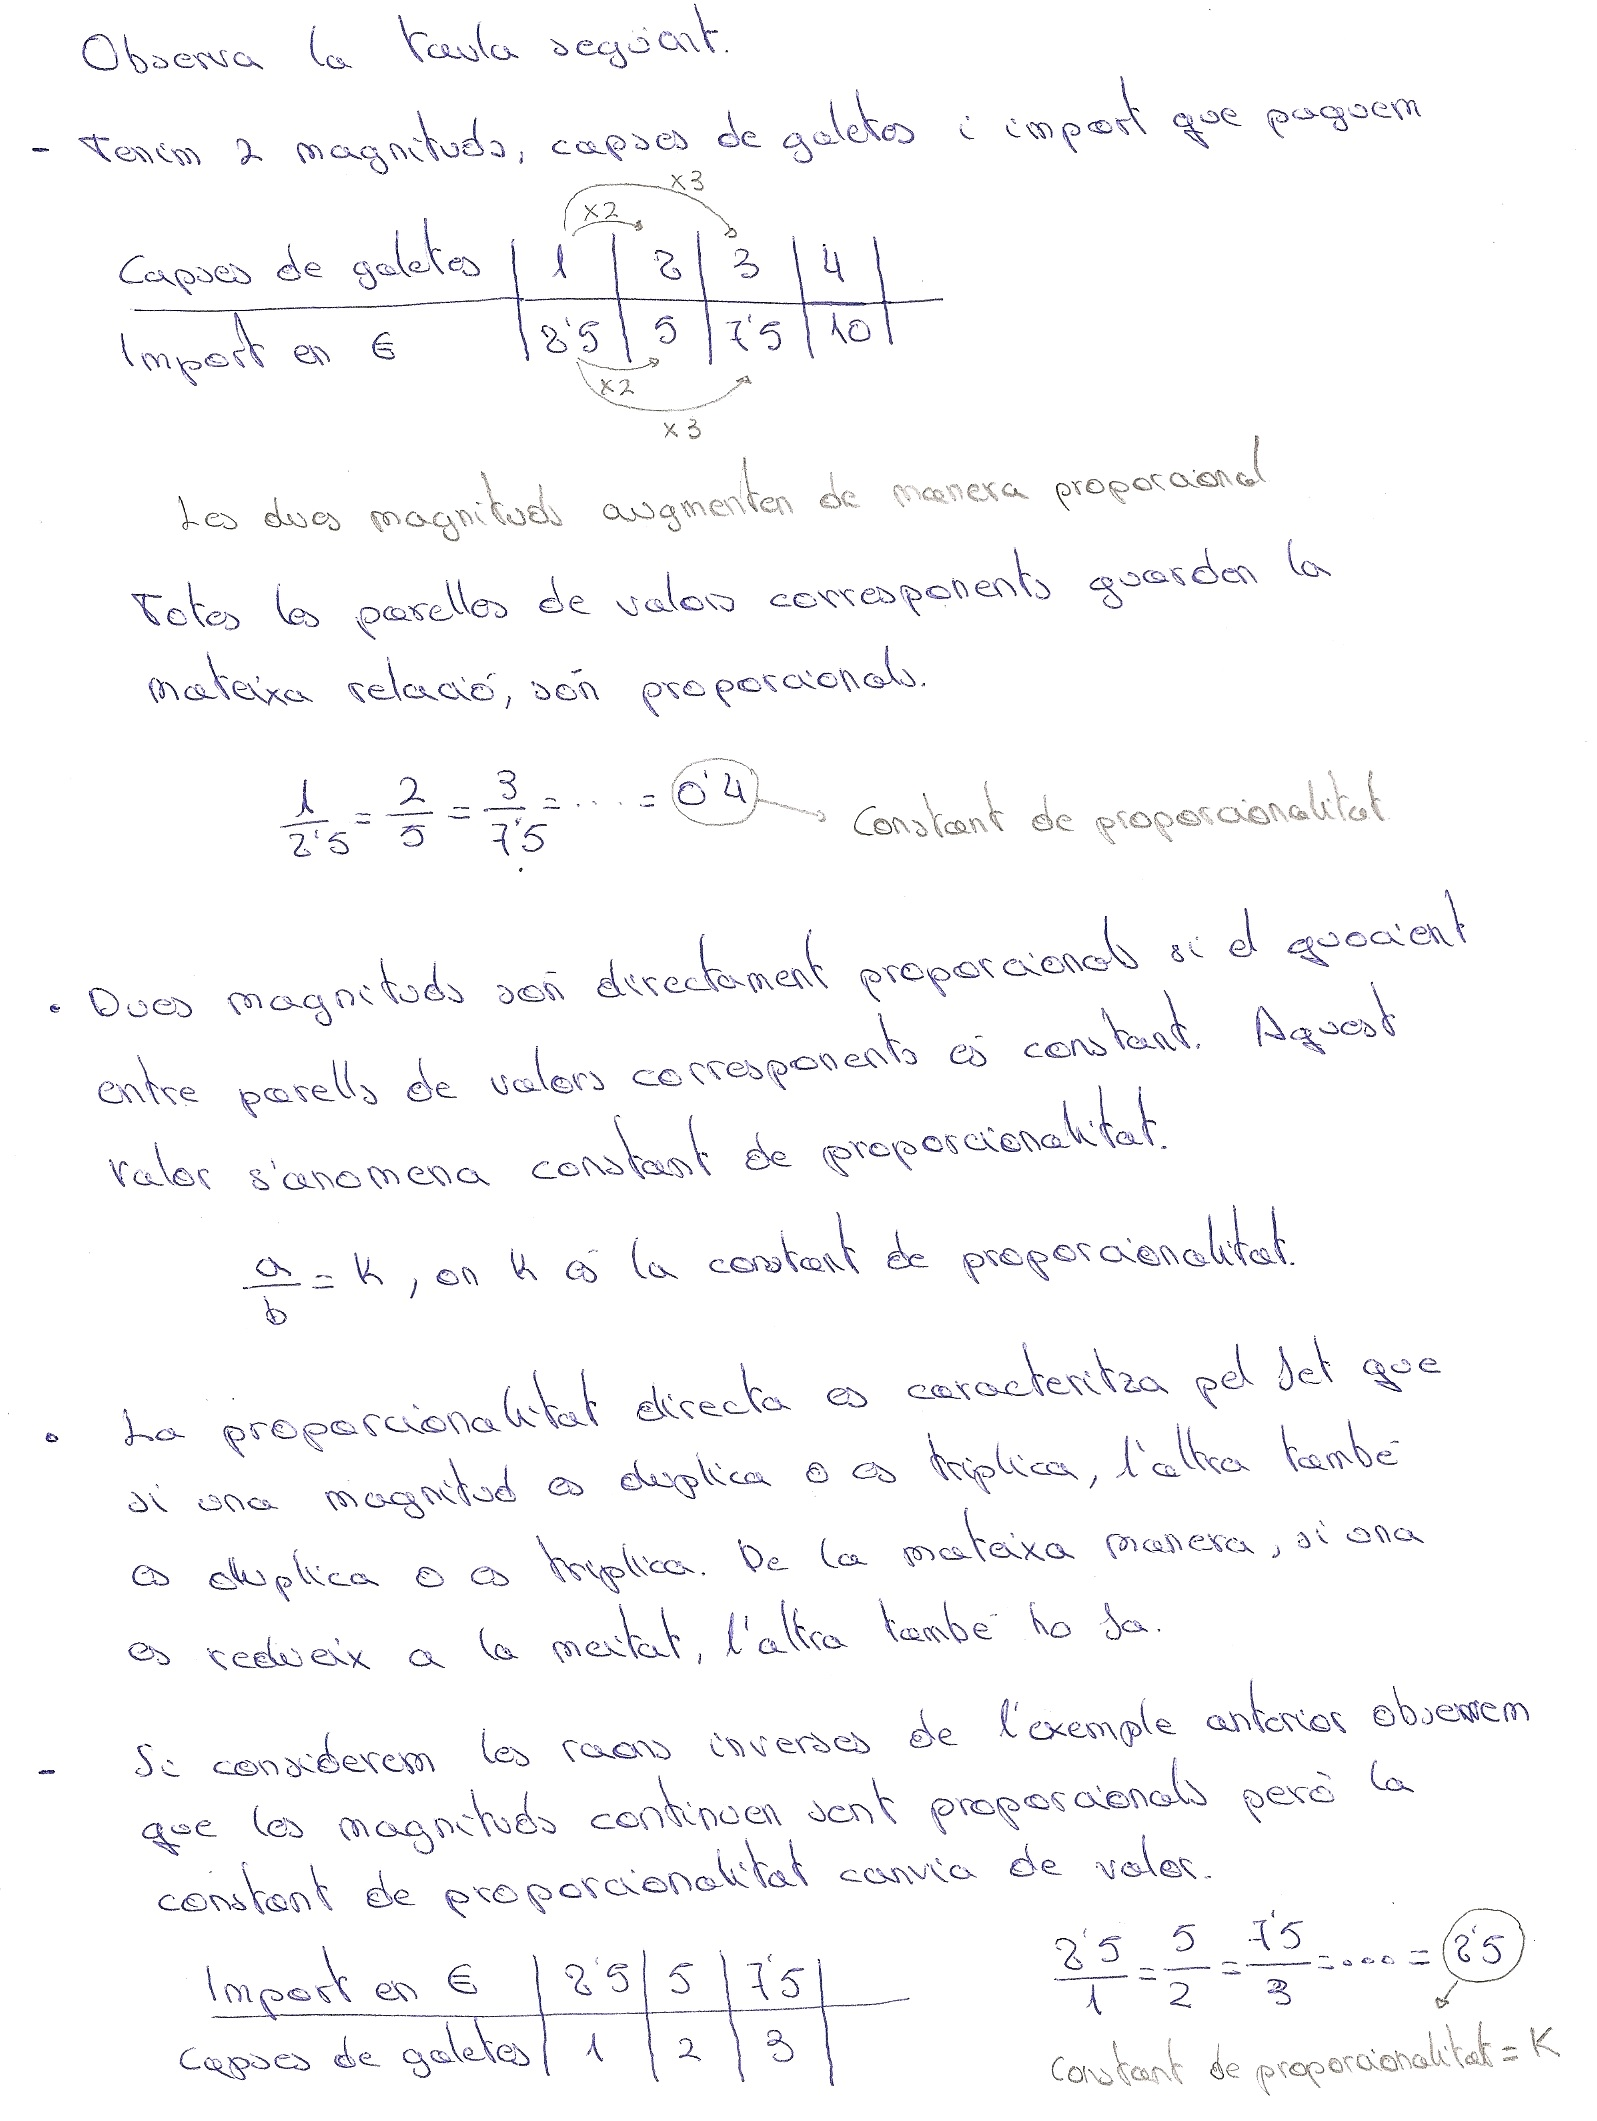 Observa la taula següent.
- Tenim 2 magnituds, capses de galetes i import que paguem
x3
x2
Capses de galetes | 1 | 2 | 3 | 4 |
Import en € | 2'5 | 5 | 7'5 | 10 |
x2
x3
Les dues magnituds augmenten de manera proporcional
Totes les parelles de valors corresponents guarden la
mateixa relació, són proporcionals.
1/2'5 = 2/5 = 3/7'5 = .... = 0'4 → Constant de proporcionalitat
• Dues magnituds són directament proporcionals si el quocient
entre parells de valors corresponents és constant. Aquest
valor s'anomena constant de proporcionalitat.
a/b = K, on K és la constant de proporcionalitat.
• La proporcionalitat directa es caracteritza pel fet que
si una magnitud es duplica o es triplica, l'altra també
es duplica o es triplica. De la mateixa manera, si una
es redueix a la meitat, l'altra també ho fa.
- Si considerem les raons inverses de l'exemple anterior observem
que les magnituds continuen sent proporcionals però la
constant de proporcionalitat canvia de valor.
Import en € | 2'5 | 5 | 7'5 |
Capses de galetes | 1 | 2 | 3 |
2'5/1 = 5/2 = 7'5/3 = .... = 2'5
Constant de proporcionalitat = K